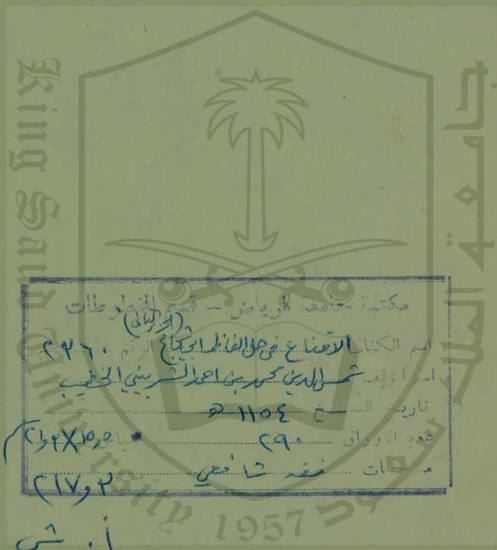 King Saud University
جامعة الملك سعود
1957
مكتبة جامعة الرياض - قسم المخطوطات
(الجزء الثاني)
اسم الكتاب الاقناع في حل الفاظ ابي شجاع الرقم ٢٣٦٠
اسم المؤلف شمس الدين محمد بن احمد الشربيني الخطيب
تاريخ النسخ ١١٥٤ هـ
عدد الأوراق ٢٩٠
فقه شافعي
٢١٧٫٣
أ. ش